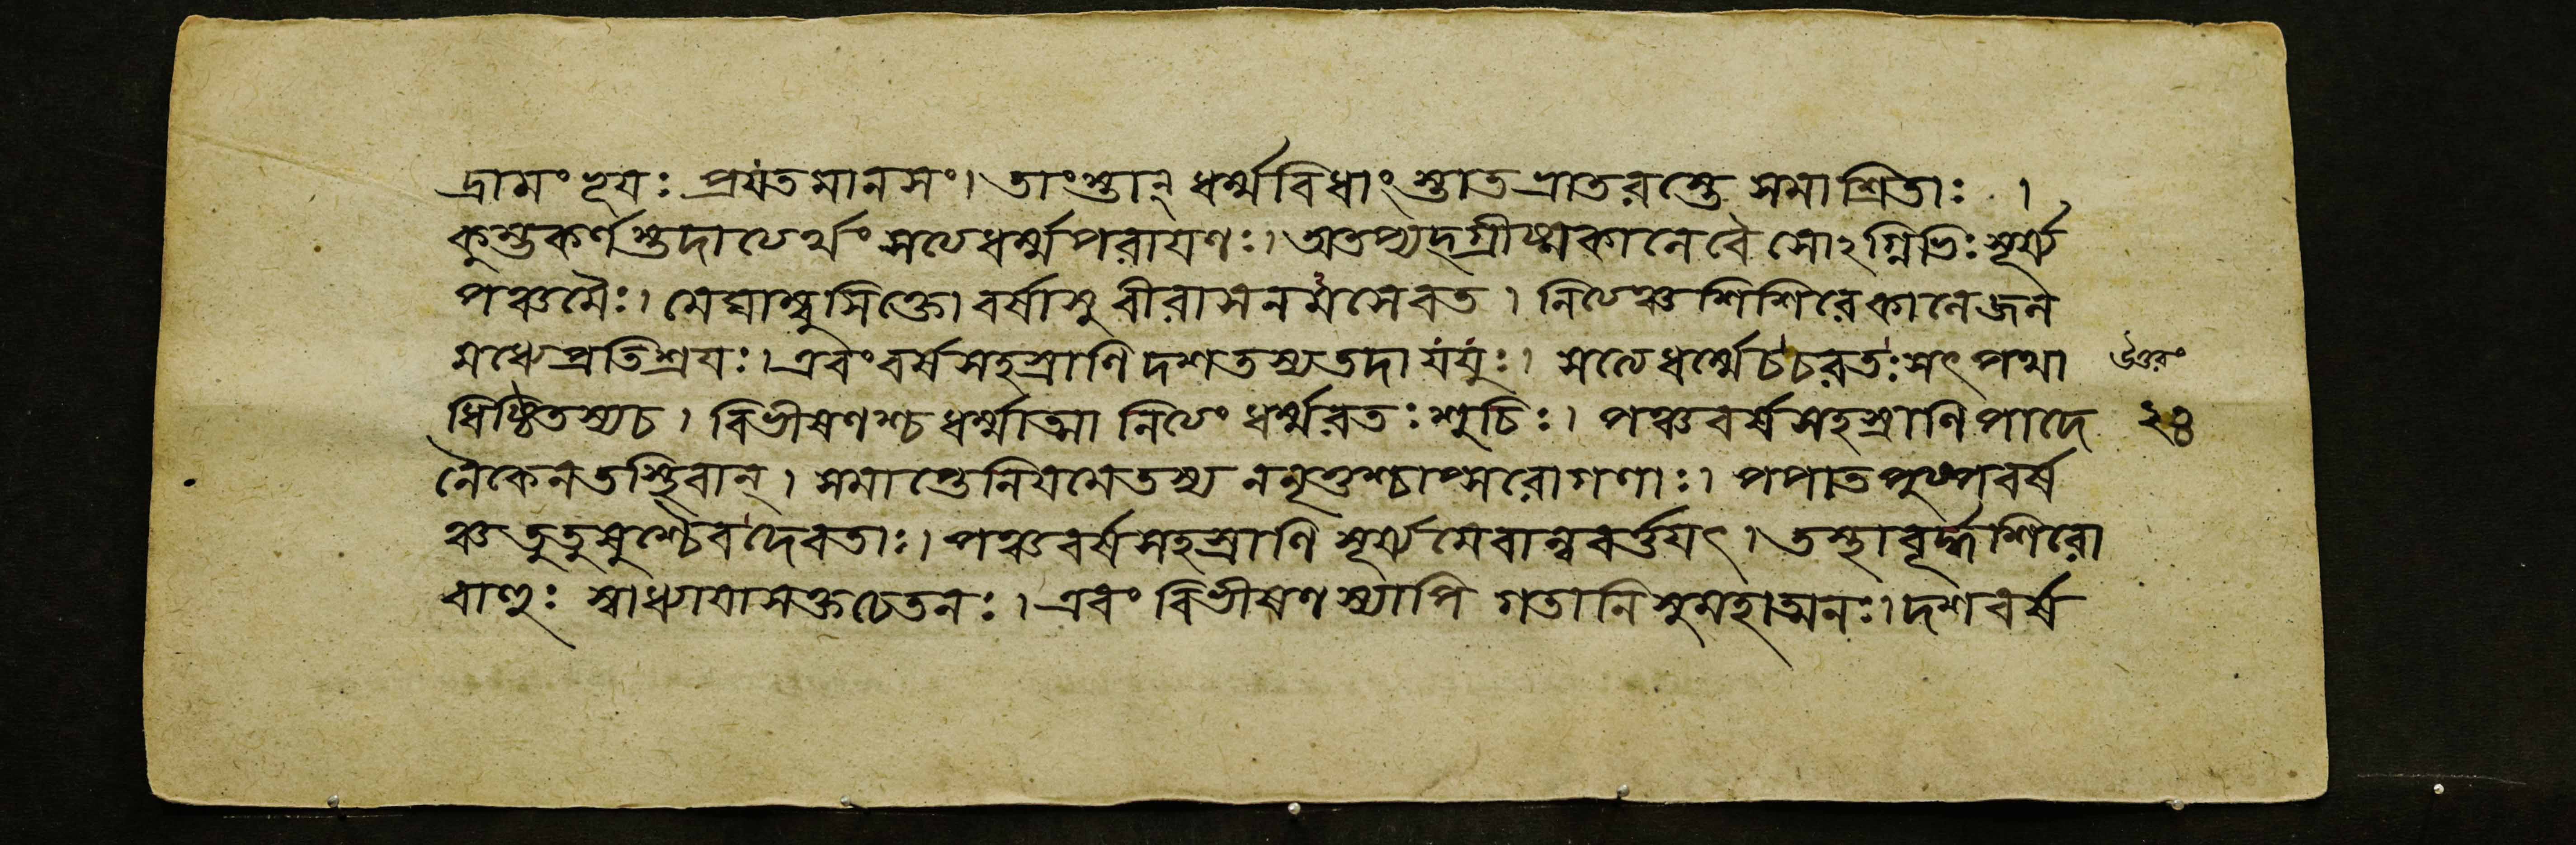 দ্রামং ভূযঃ প্রযতমানসং। তাংস্তান্ ধর্ম্মবিধাংস্তাত ভ্রাতরস্তে সমাশ্রিতাঃ ।
কুম্ভকর্ণস্তদাত্যর্থং সত্যধর্ম্মপরাযণঃ। অতপ্যদ্গ্রীষ্মকালে বৈ সোঽগ্নিভিঃ সূর্য্য
পঞ্চমৈঃ। মেঘাম্বুসিক্তো বর্ষাসু বীরাসনমসেবত । নিত্যঞ্চ শিশিরে কালে জল
মধ্যপ্রতিশ্রযঃ। এবং বর্ষসহস্রাণি দশ তস্য তদা যযুঃ। সত্যে ধর্ম্মে চ চরতঃ সৎপথা উত্তরং
ধিষ্ঠিতস্য চ । বিভীষণশ্চ ধর্ম্মাত্মা নিত্যং ধর্ম্মরতঃ শুচিঃ। পঞ্চবর্ষসহস্রাণি পাদে ২৪
নৈকেন তস্থিবান্ । সমাপ্তে নিযমে তস্য ননৃতুশ্চাপ্সরোগণাঃ। পপাত পুষ্পবর্ষ
ঞ্চ তুতুষুশ্চৈব দেবতাঃ। পঞ্চবর্ষসহস্রাণি সূর্য্যমেবান্ববর্ত্তযৎ । তস্থাবূর্দ্ধশিরো
বাহুঃ স্বাধ্যাযাসক্তচেতনঃ। এবং বিভীষণস্যাপি গতানি সুমহাত্মনঃ। দশবর্ষ